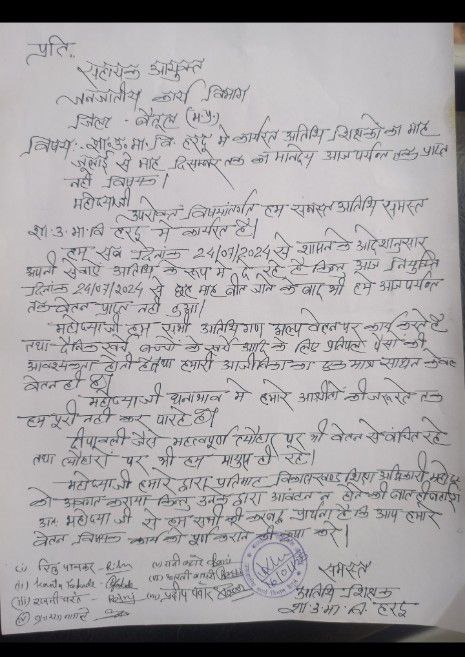 प्रति,
सहायक आयुक्त
जनजातीय कार्य विभाग
जिला - बैतूल (म.प्र.)
विषय:- शा. उ. मा. वि. हरदू में कार्यरत अतिथि शिक्षकों का माह
जुलाई से माह दिसम्बर तक का मानदेय आज पर्यन्त तक प्राप्त
नही विषयक।
महोदयाजी
उपरोक्त विषयांतर्गत हम समस्त अतिथि समस्त
शा. उ. मा. वि हरदू में कार्यरत है।
हम सब दिनांक 24/07/2024 से शासन के आदेशानुसार
अपनी सेवाएं अतिथि के रूप में दे रहे है किन्तु आज नियुक्ति
दिनांक 24/07/2024 से छह माह बीत जाने के बाद भी हमे आज पर्यन्त
तक वेतन प्राप्त नही हुआ।
महोदयाजी हम सभी अतिथिगण अल्प वेतन पर कार्य करते है
तथा दैनिक खर्च बच्चो के खर्च आदि के लिए प्रतिपल पैसो की
आवश्यकता होती है तथा हमारी आजीविका का एक मात्र साधन केवल
वेतन ही है।
महोदयाजी धनाभाव मे हमारे आश्रीतो की जरूरते तक
हम पूरी नही कर पा रहे है।
दीपावली जैसे महत्वपूर्ण त्यौहार पर भी वेतन से वंचित रहे
तथा त्यौहारो पर भी हम मायूस ही रहे।
महोदयाजी हमारे द्वारा प्रतिमाह विकासखण्ड शिक्षा अधिकारी महोदय
को अवगत कराया किन्तु उनके द्वारा आवंटन न होने की बात ही बताई गई
अतः महोदया जी से हम सभी की करबद्ध प्रार्थना है कि आप हमारे
वेतन विषयक कार्य को पूर्ण कराने की कृपा करे।
समस्त
अतिथि शिक्षक
शा. उ. मा. वि. हरदू